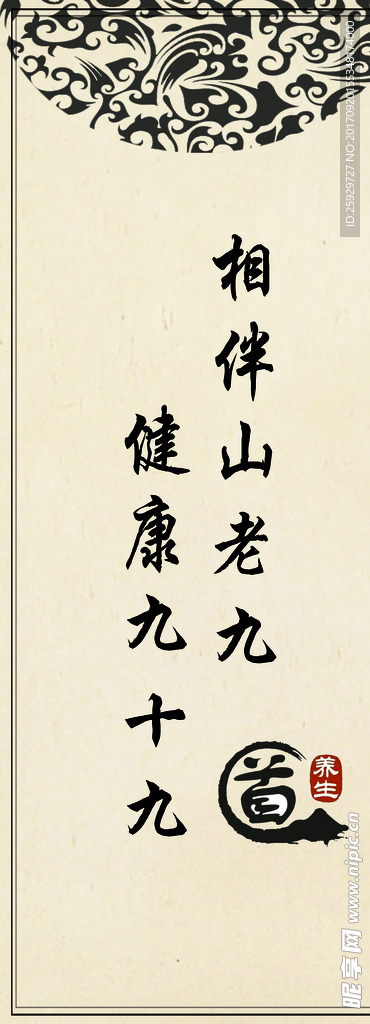 相伴山老九
健康九十九
道
养生
ID:25929727 NO:20170920155348174000
昵享网 www.nipic.cn